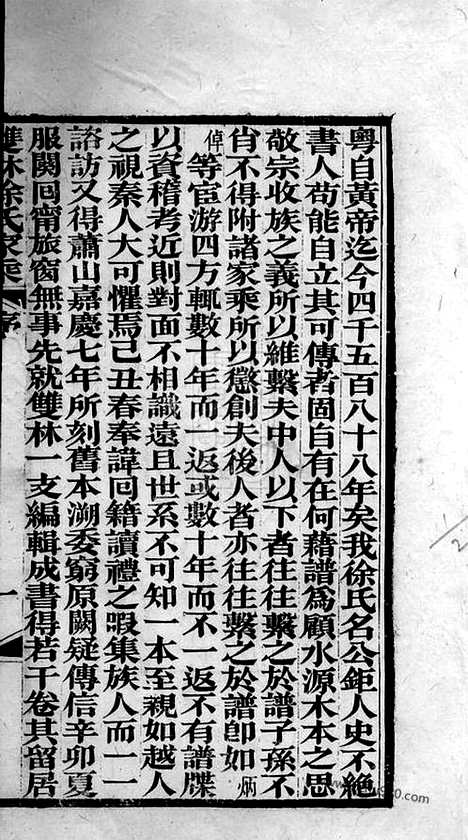 粵自黃帝迄今四千五百八十八年矣我徐氏名公鉅人史不絕
書人苟能自立其可傳者固自有在何藉譜為顧水源木本之思
敬宗收族之義所以維繫夫中人以下者往往繫之於譜子孫不
肖不得附諸家乘所以懲創夫後人者亦往往繫之於譜即如炳
倬等宦游四方輒數十年而一返或數十年而不一返不有譜牒
以資稽考近則對面不相識遠且世系不可知一本至親如越人
之視秦人大可懼焉己丑春奉諱回籍讀禮之暇集族人而一一
諮訪又得蕭山嘉慶七年所刻舊本溯委窮原闕疑傳信辛卯夏
服闋回甯旅窗無事先就雙林一支編輯成書得若干卷其留居
雙林徐氏家乘 序 一